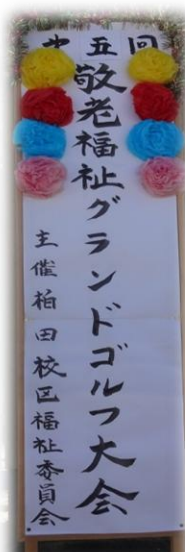 五回
敬老福祉グランドゴルフ大会
主催柏田校区福祉委員会